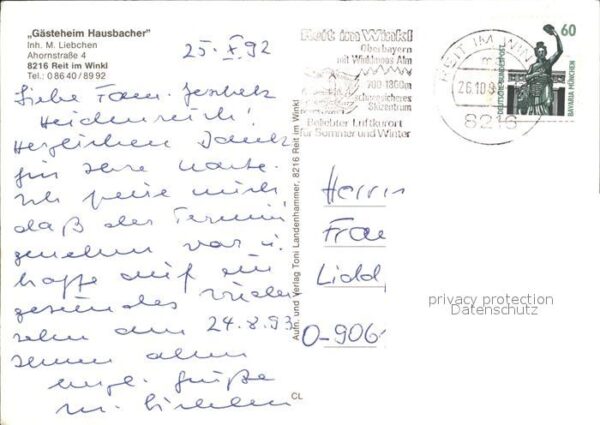 „Gästeheim Hausbacher"
Inh. M. Liebchen
Ahornstraße 4
8216 Reit im Winkl
Tel.: 0 86 40 / 89 92
25. X. 92
Liebe Fam.
Heidenreich!
Herzlichen Dank
für Ihre Karte.
Ich freue mich
daß der Termin
genehm war u.
hoffe auf ein
gesundes Wieder
sehen am 24.8.93
Ihnen allen
Grüße
M. Liebchen
Reit im Winkl
Oberbayern
mit Winklmoos Alm
700-1860m
schneesicheres
Skizentrum
Beliebter Luftkurort
für Sommer und Winter
REIT IM WIN
26.10.9
8216
60
DEUTSCHE BUNDESPOST
BAVARIA MÜNCHEN
Aufn. und Verlag Toni Landenhammer, 8216 Reit im Winkl
CL
Herrn
Frau
O-906
privacy protection
Datenschutz